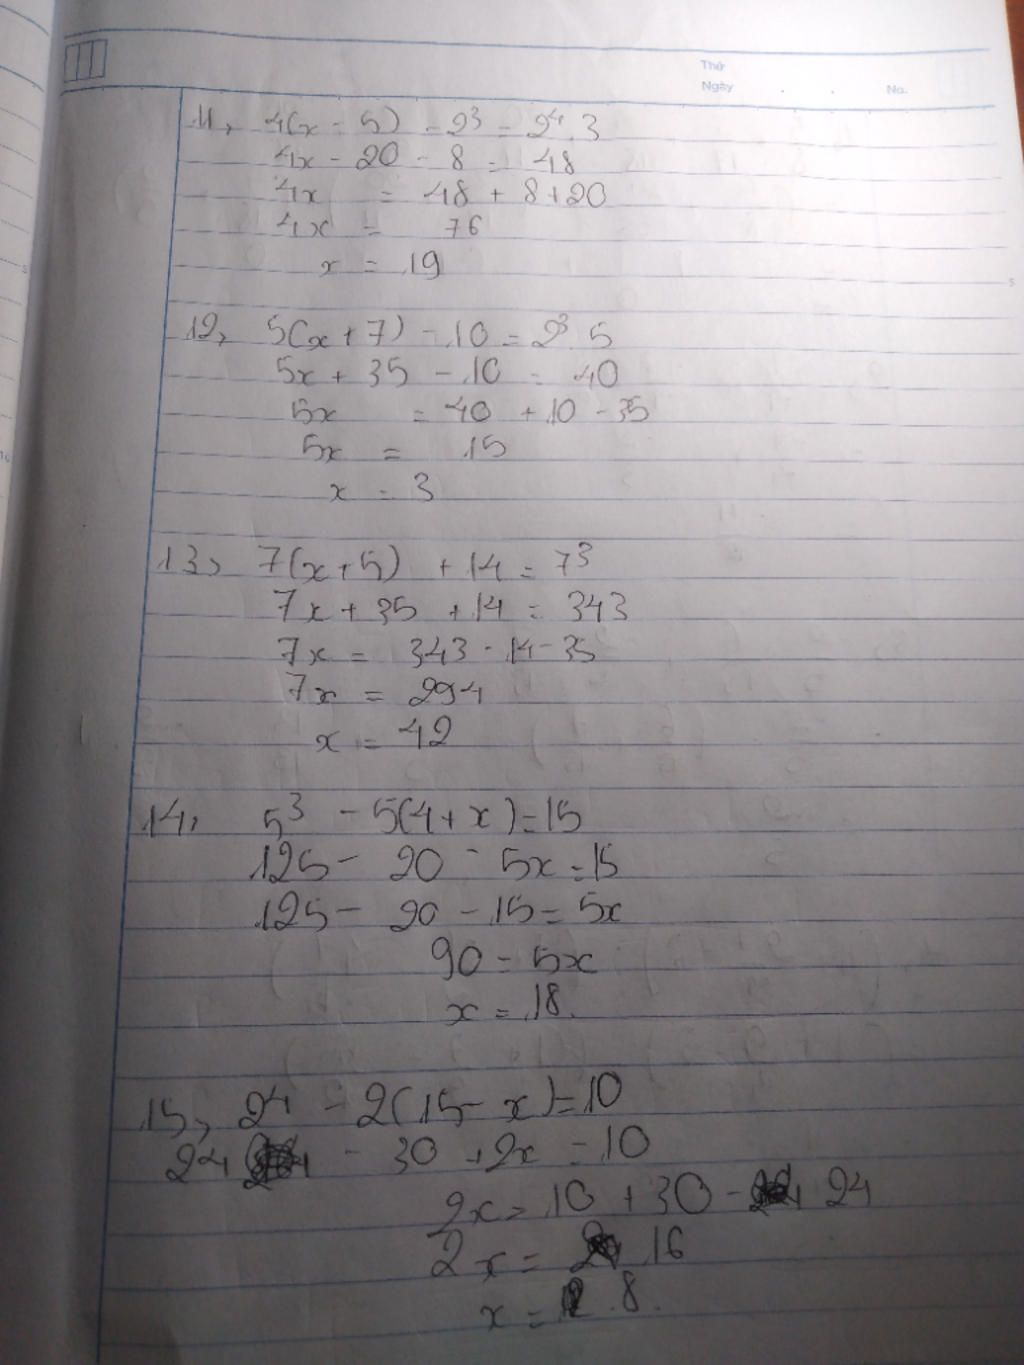 Thứ
Ngày . . No.
11, 4(x - 5) - 2³ = 2⁴.3
4x - 20 - 8 = 48
4x = 48 + 8+20
4x = 76
x = 19
12, 5(x + 7) - 10 = 2³ 5
5x + 35 - 10 = 40
5x = 40 + 10 - 35
5x = 15
x = 3
13, 7(x+5) + 14 = 7³
7x + 35 + 14 = 343
7x = 343 - 14 - 35
7x = 294
x = 42
14, 5³ - 5(4+x)=15
125 - 20 - 5x = 15
125 - 20 - 15 = 5x
90 = 5x
x = 18.
15, 24 - 2(15 - x) = 10
24 - 30 + 2x = 10
2x = 10 + 30 - 24
2x = 16
x = 8.